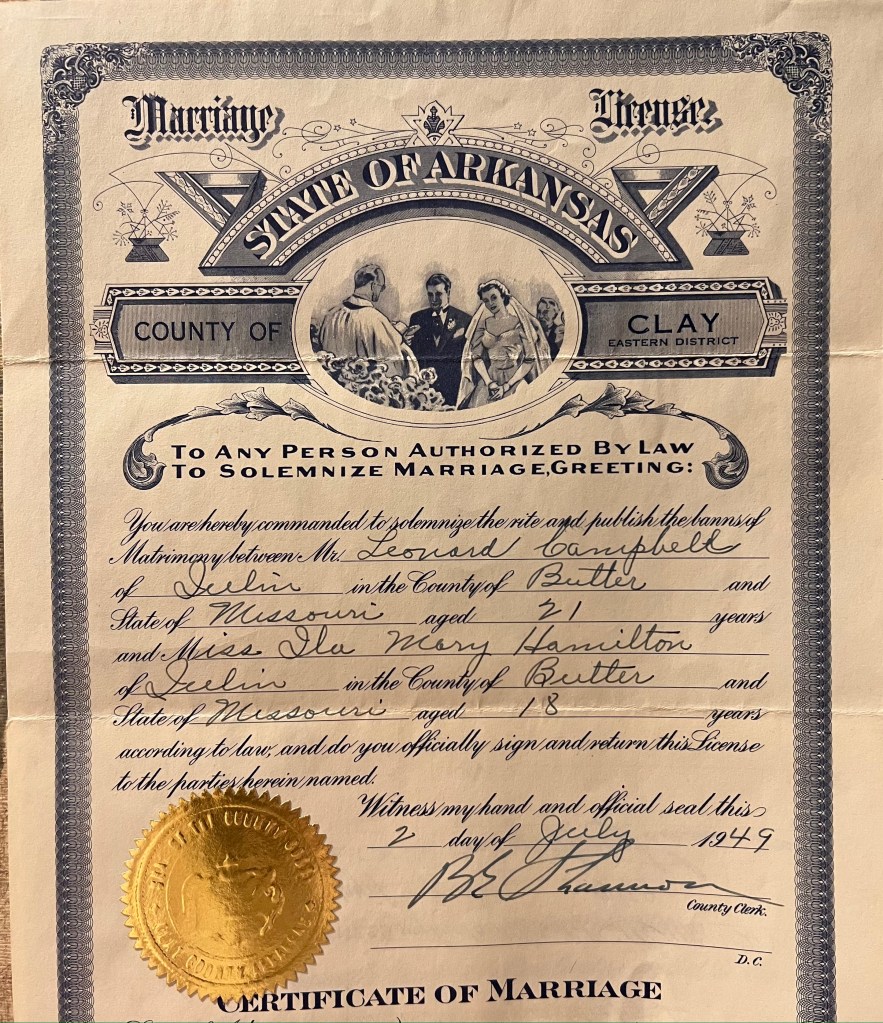 Marriage License
STATE OF ARKANSAS
COUNTY OF CLAY
EASTERN DISTRICT
TO ANY PERSON AUTHORIZED BY LAW
TO SOLEMNIZE MARRIAGE, GREETING:
You are hereby commanded to solemnize the rite and publish the banns of
Matrimony between Mr. Leonard Campbell
of in the County of Butler and
State of Missouri aged 21 years
and Miss Ila Mary Hamilton
of in the County of Butler and
State of Missouri aged 18 years
according to law, and do you officially sign and return this License
to the parties herein named.
Witness my hand and official seal this
2 day of July 1949
B E Shannon
County Clerk.
D.C.
CERTIFICATE OF MARRIAGE